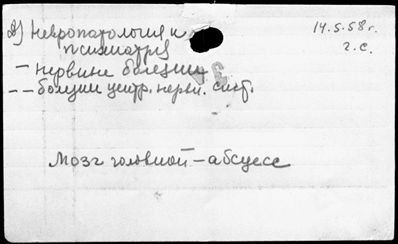 2) Невропатология и
психиатрия
14.5.58г.
г.с.
— нервные болезни
— — болезни центр. нервн. сист.
Мозг головной — абсцесс